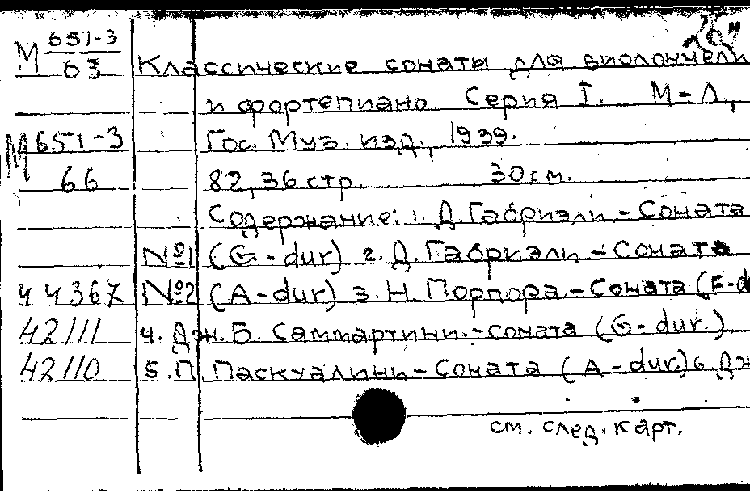 М 651-3/63 Классические сонаты для виолончели
и фортепиано Серия I. М-Л,
М 651-3 Гос. Муз. изд., 1939.
66 82, 36 стр. 30 см.
Содержание: 1. Д. Габриэли - Соната
№1 (G-dur) 2. Д. Габриэли - Соната
44367 №2 (A-dur) 3. Н. Порпора - Соната (F-d
42111 4. Дж. Б. Саммартини - соната (G-dur.)
42110 5. П. Паскуалини - Соната (A-dur) 6. Дж
см. след. карт.